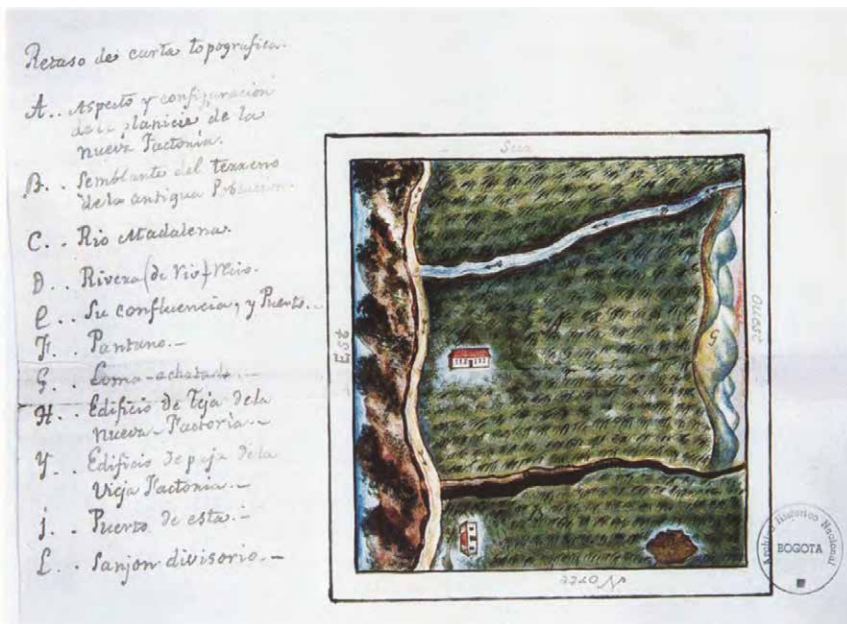 Retaso de carta topografica.
A.. Aspecto y configuracion
de la planicie de la
nueva Factoria.
B.. Semblante del terreno
de la antigua Poblacion.
C.. Rio Madalena.
D.. Rivera (de Rio)
E.. Su confluencia, y Puerto..
F.. Pantano.-
G.. Loma achatada.-
H.. Edificio de Teja dela
nueva Factoria.-
Y.. Edificio de paja dela
Vieja Factoria.-
j.. Puerto de esta.-
L.. Sanjon divisorio.-
Sur
Est
Ouest
G
Norte
Archivo Historico Nacional
BOGOTA